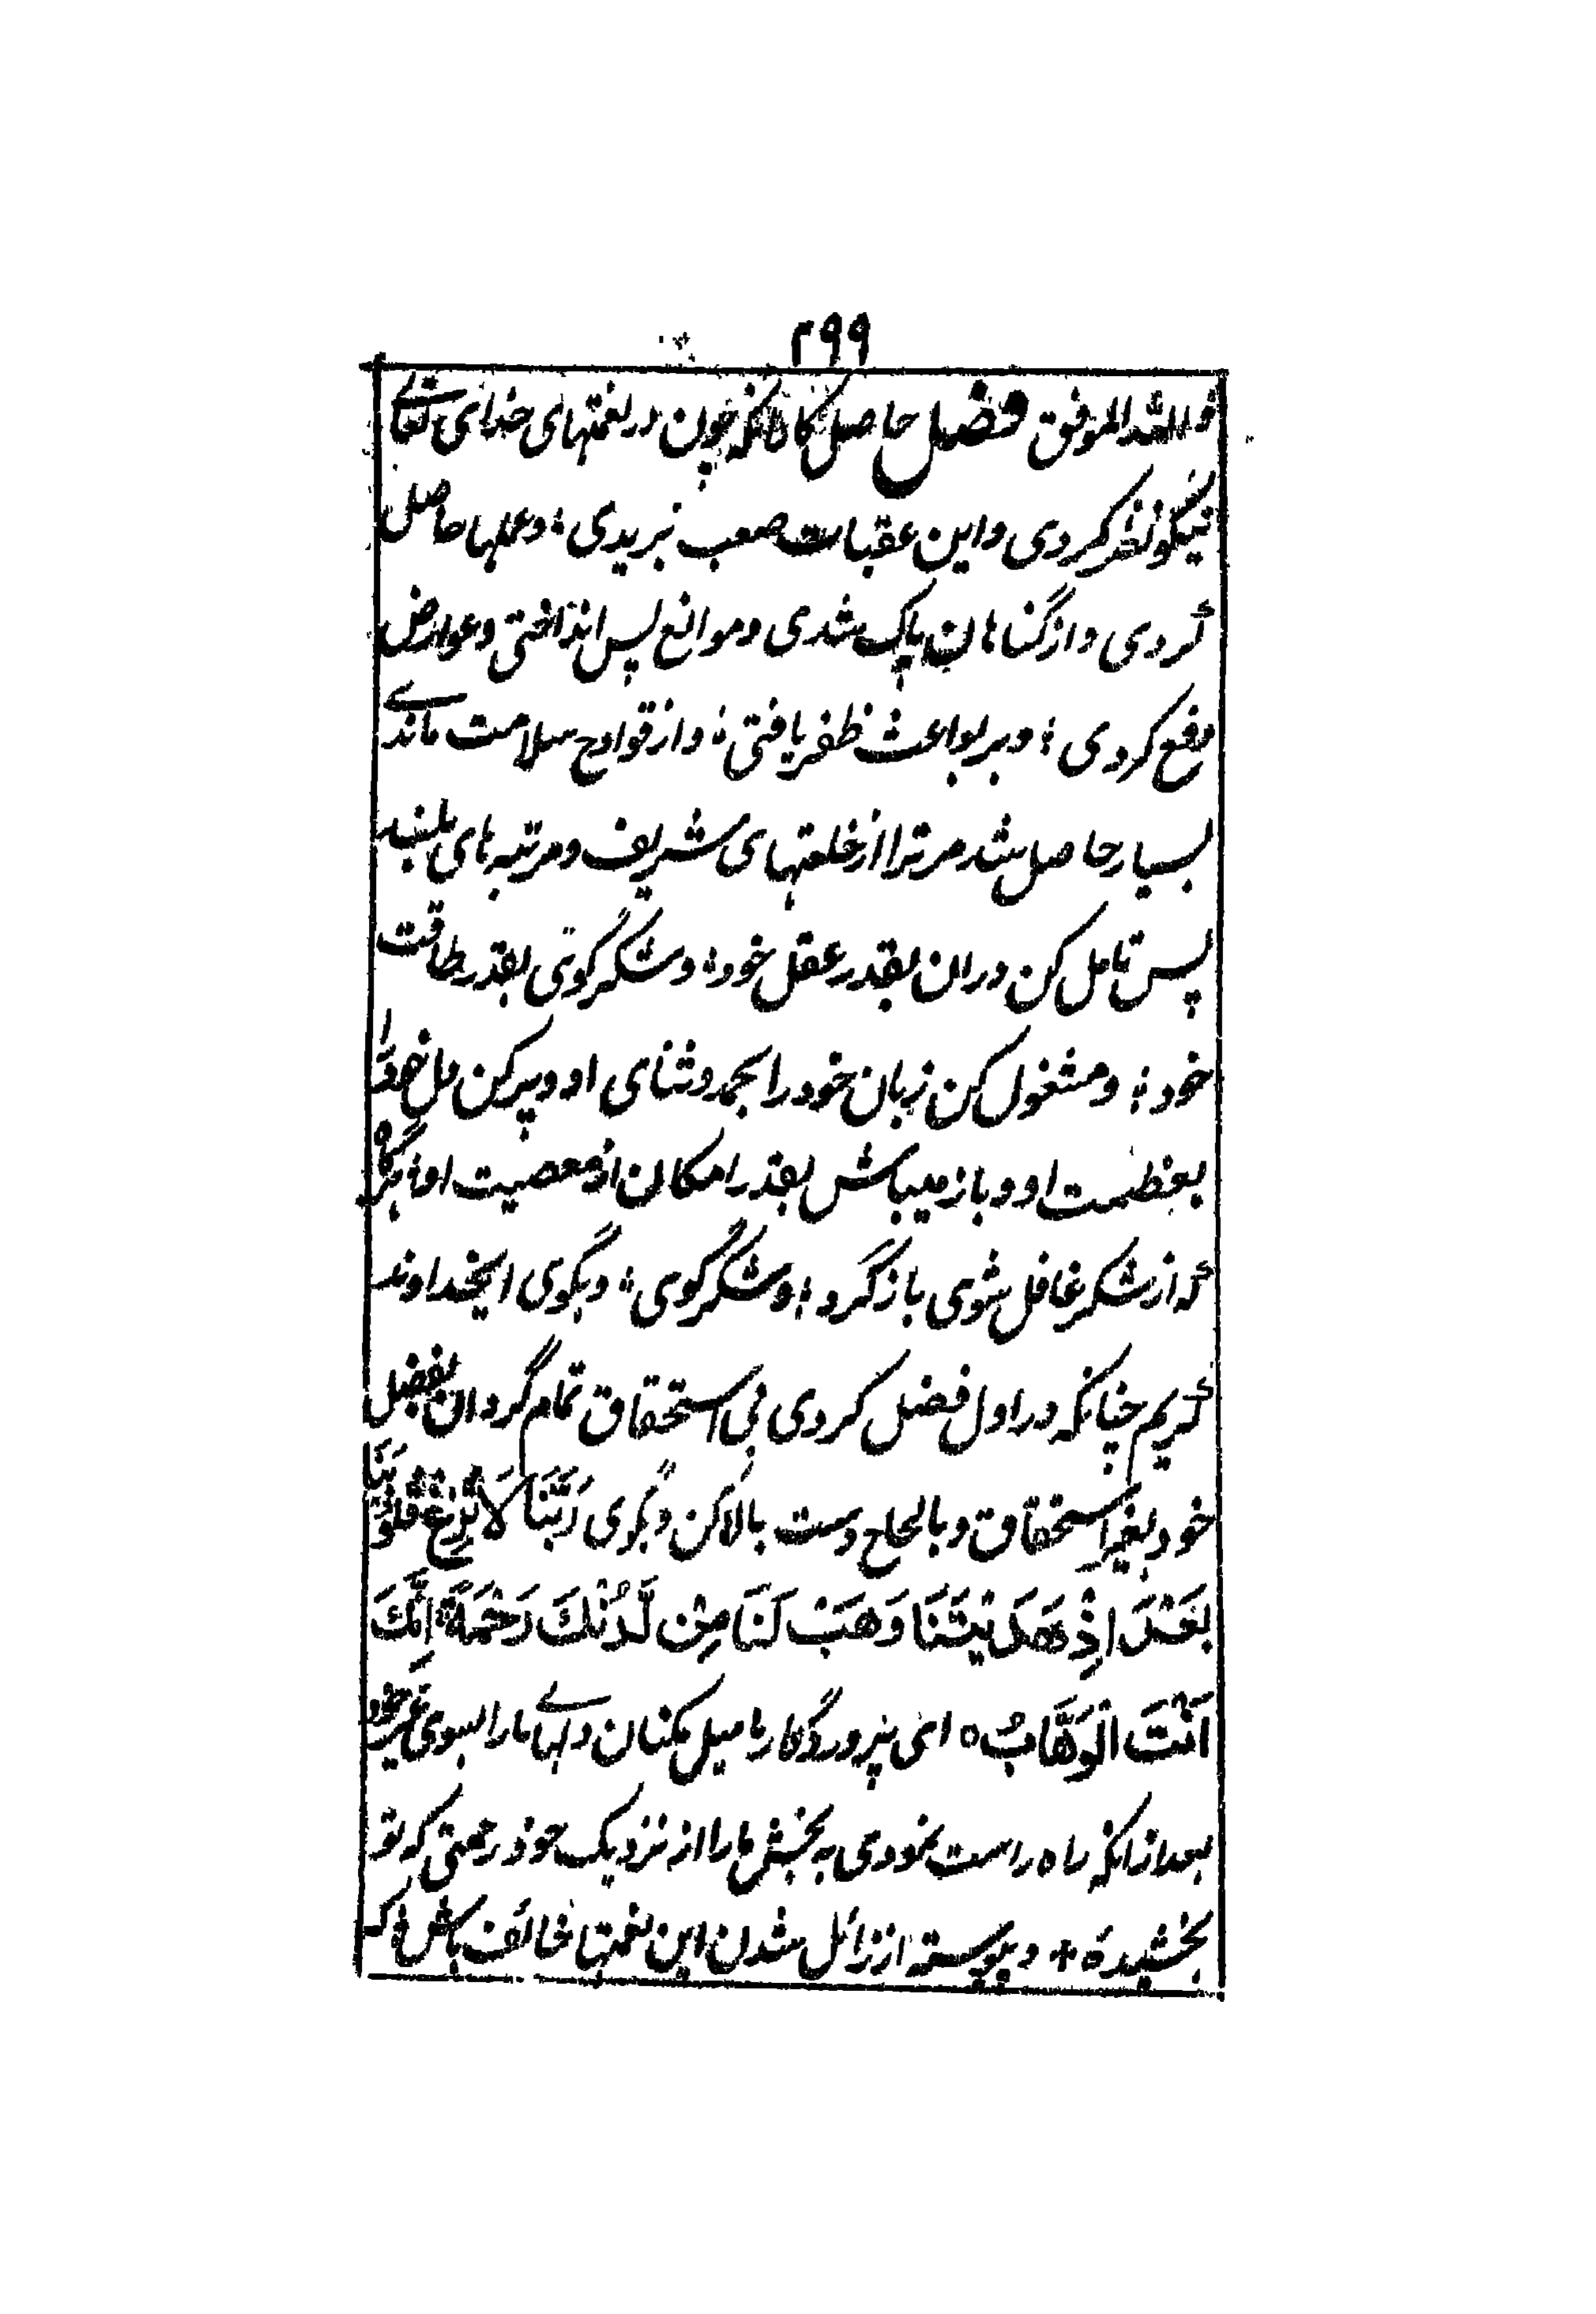 ۲۹۹
واللّه الموفق فصل حاصل کلام آنکه چون در نعمتهای خدای تعالے
نیکو نظر کردی و این عقبات صعب ببریدی ؛ و عملها حاصل
کردی و از گناهان پاک شدی و موانع پس انداختی و عوارض
دفع کردی ؛ و بر بواعث ظفر یافتی ؛ و از قوادح سلامت ماندے
بسیار حاصل شد مر ترا از خلعتهای شریف و مرتبه های بلند
پس تامل کن دران بقدر عقل خود ؛ و شکر گوی بقدر طاقت
خود ؛ و مشغول کن زبان خود را بحمد و ثنای او و پر کن دل خود را
بعظمت او و باز میباش بقدر امکان از معصیت او ؛ هرگاه
که از شکر غافل شوی باز گرد ؛ و شکر گوی ؛ و بگوی ایخداوند
کریم چنانکه در اول فضل کردی بی استحقاق تمام گردان بفضل
خود بغیر استحقاق و بالحاح دست بالا کن و بگوی رَبَّنَا لَا تُزِغْ قُلُوْبَنَا
بَعْدَ اِذْ هَدَيْتَنَا وَهَبْ لَنَا مِنْ لَّدُنْكَ رَحْمَةً اِنَّكَ
اَنْتَ الْوَهَّابُ ه ای پروردگار ما میل مکنان دلهاے ما را بسوی غیر خود
بعد از انکه راه راست نمودی به بخش ما را از نزدیک خود رحمتی که تو
بخشیدهٔ + و پیوسته از زائل شدن این نعمتها خائف باش ؛ که